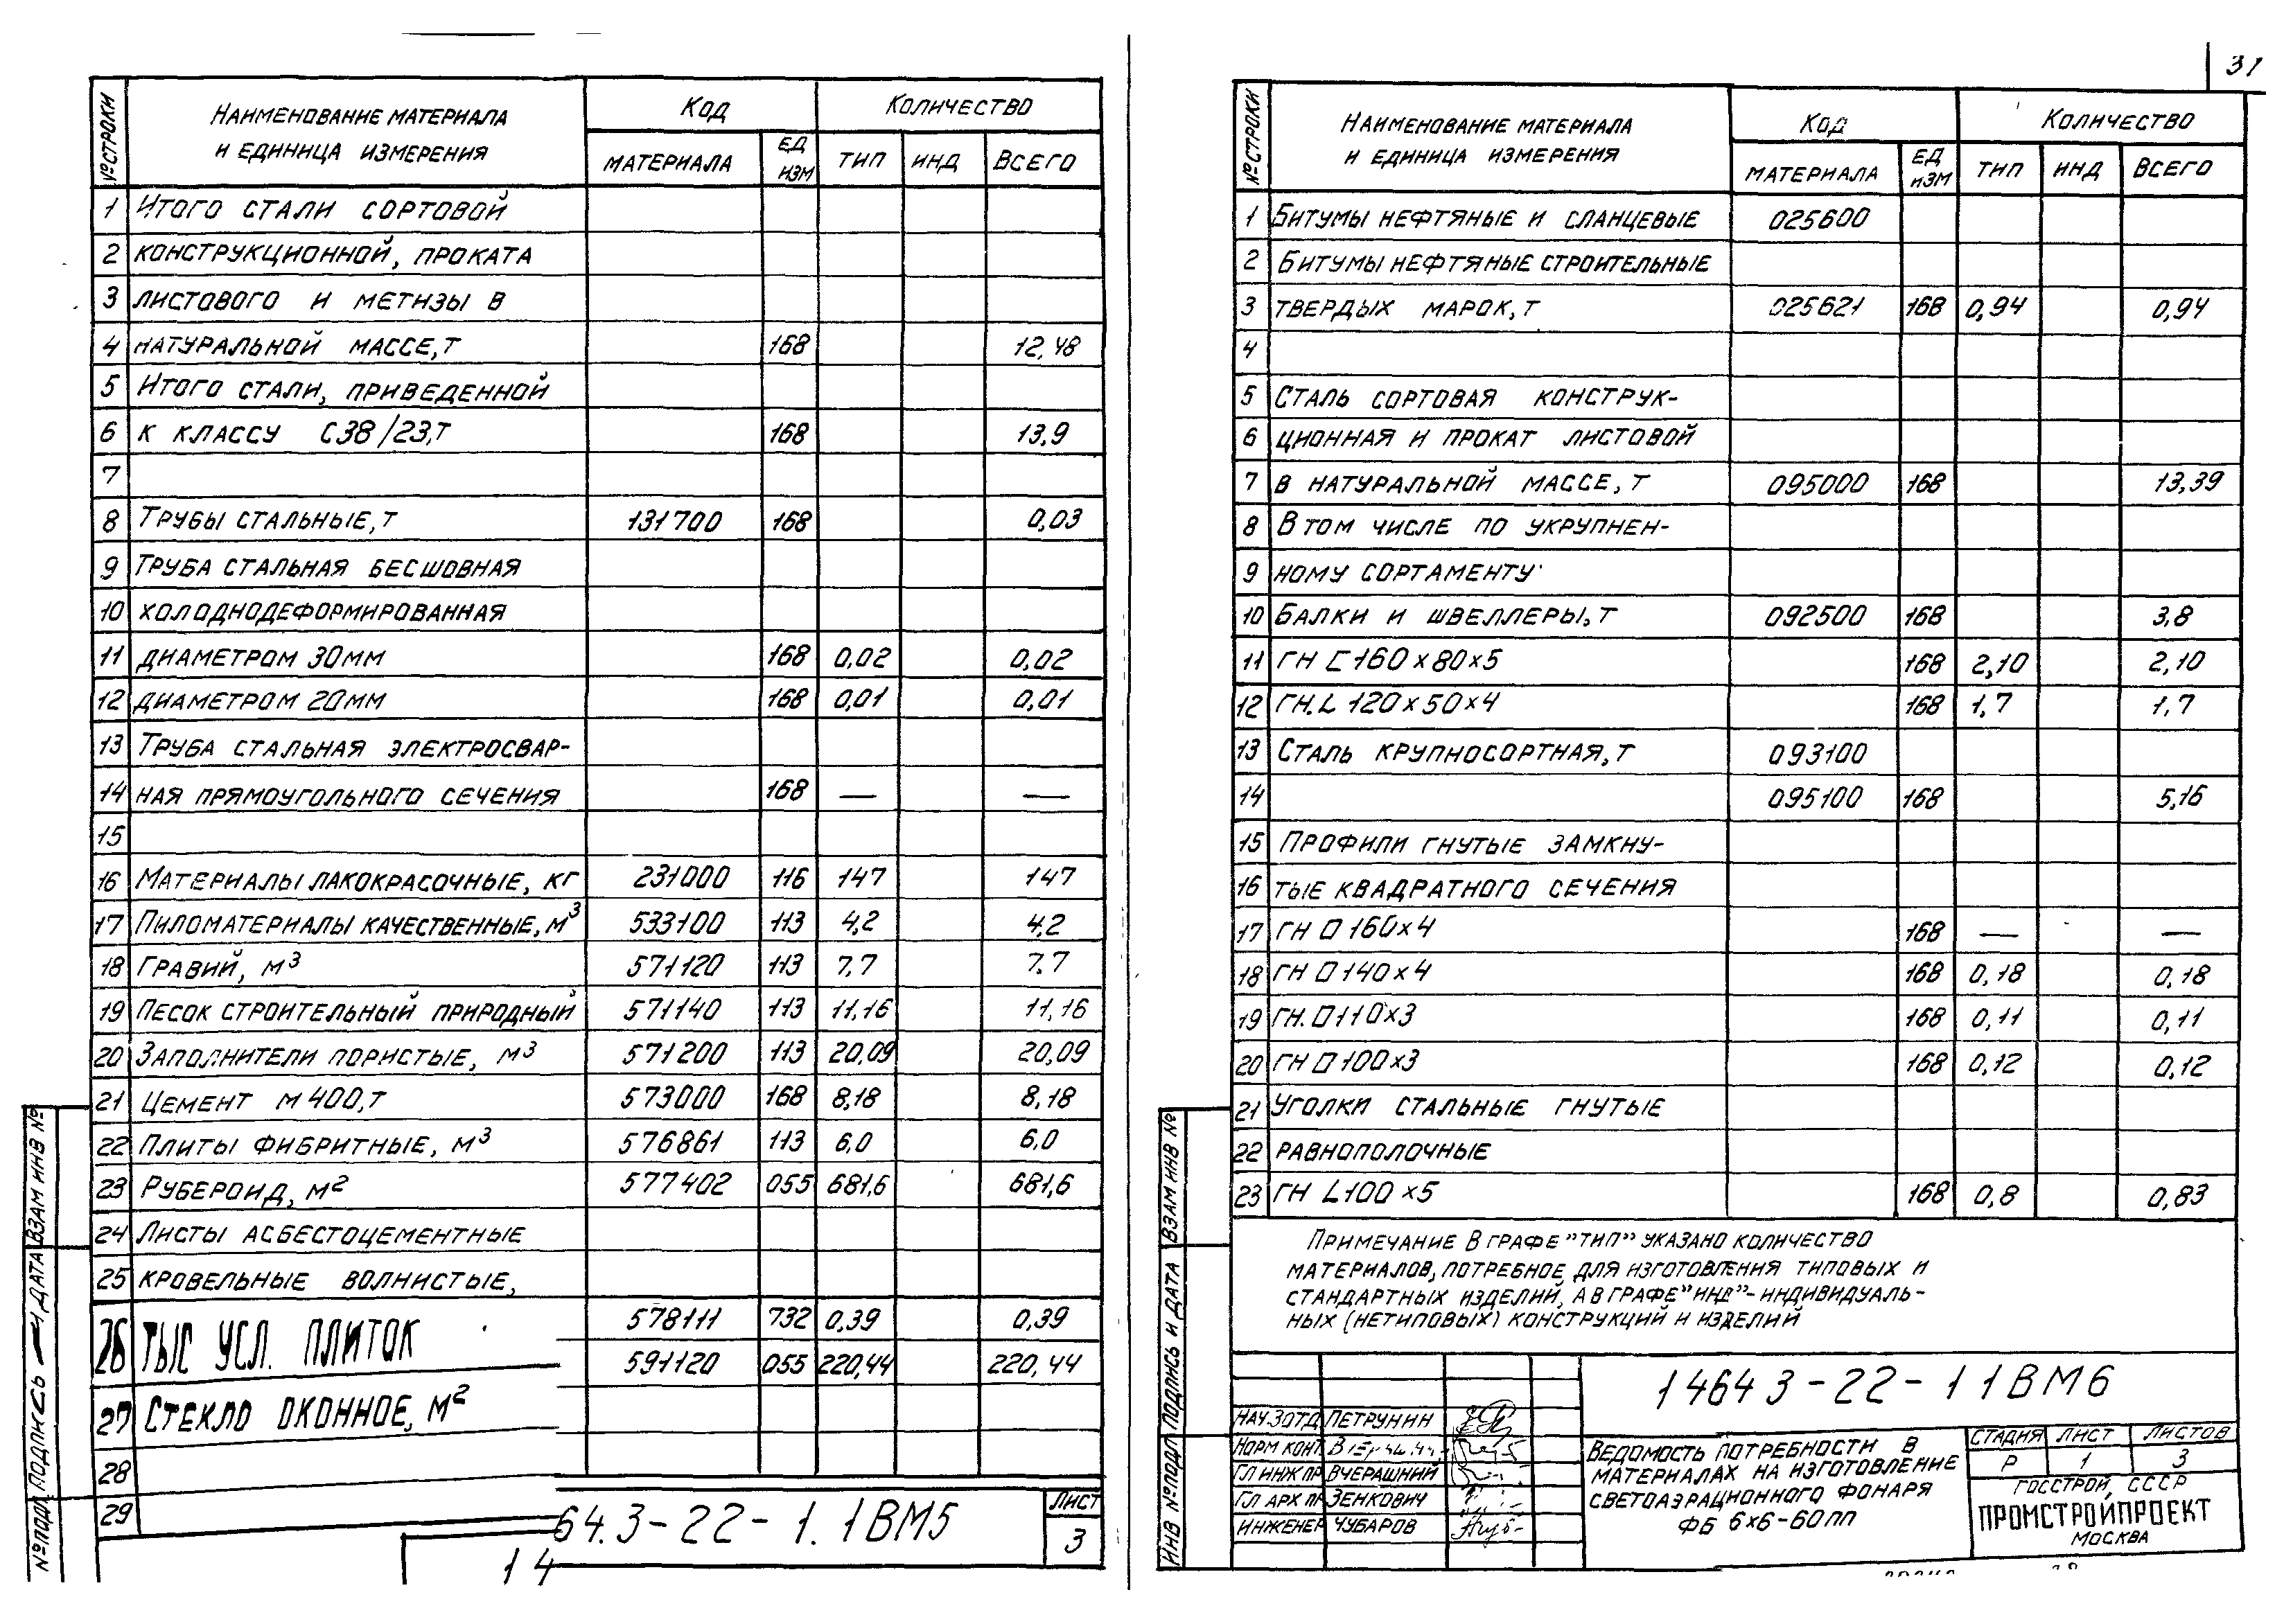 31
№ СТРОКИ | НАИМЕНОВАНИЕ МАТЕРИАЛА И ЕДИНИЦА ИЗМЕРЕНИЯ | КОД | КОЛИЧЕСТВО
МАТЕРИАЛА | ЕД ИЗМ | ТИП | ИНД | ВСЕГО
1 ИТОГО СТАЛИ СОРТОВОЙ
2 КОНСТРУКЦИОННОЙ, ПРОКАТА
3 ЛИСТОВОГО И МЕТИЗЫ В
4 НАТУРАЛЬНОЙ МАССЕ, Т 168 12,48
5 ИТОГО СТАЛИ, ПРИВЕДЕННОЙ
6 К КЛАССУ С38/23, Т 168 13,9
7
8 ТРУБЫ СТАЛЬНЫЕ, Т 131700 168 0,03
9 ТРУБА СТАЛЬНАЯ БЕСШОВНАЯ
10 ХОЛОДНОДЕФОРМИРОВАННАЯ
11 ДИАМЕТРОМ 30ММ 168 0,02 0,02
12 ДИАМЕТРОМ 20ММ 168 0,01 0,01
13 ТРУБА СТАЛЬНАЯ ЭЛЕКТРОСВАР-
14 НАЯ ПРЯМОУГОЛЬНОГО СЕЧЕНИЯ 168 — —
15
16 МАТЕРИАЛЫ ЛАКОКРАСОЧНЫЕ, КГ 231000 116 147 147
17 ПИЛОМАТЕРИАЛЫ КАЧЕСТВЕННЫЕ, М³ 533100 113 4,2 4,2
18 ГРАВИЙ, М³ 571120 113 7,7 7,7
19 ПЕСОК СТРОИТЕЛЬНЫЙ ПРИРОДНЫЙ 571140 113 11,16 11,16
20 ЗАПОЛНИТЕЛИ ПОРИСТЫЕ, М³ 571200 113 20,09 20,09
21 ЦЕМЕНТ М400, Т 573000 168 8,18 8,18
22 ПЛИТЫ ФИБРИТНЫЕ, М³ 576861 113 6,0 6,0
23 РУБЕРОИД, М² 577402 055 681,6 681,6
24 ЛИСТЫ АСБЕСТОЦЕМЕНТНЫЕ
25 КРОВЕЛЬНЫЕ ВОЛНИСТЫЕ,
26 ТЫС УСЛ. ПЛИТОК 578111 732 0,39 0,39
27 СТЕКЛО ОКОННОЕ, М² 591120 055 220,44 220,44
28
29
1464.3-22-1.1ВМ5
ЛИСТ
3
№ПОДЛ. ПОДПИСЬ И ДАТА ВЗАМ ИНВ №
№ СТРОКИ | НАИМЕНОВАНИЕ МАТЕРИАЛА И ЕДИНИЦА ИЗМЕРЕНИЯ | КОД | КОЛИЧЕСТВО
МАТЕРИАЛА | ЕД ИЗМ | ТИП | ИНД | ВСЕГО
1 БИТУМЫ НЕФТЯНЫЕ И СЛАНЦЕВЫЕ 025600
2 БИТУМЫ НЕФТЯНЫЕ СТРОИТЕЛЬНЫЕ
3 ТВЕРДЫХ МАРОК, Т 025621 168 0,94 0,94
4
5 СТАЛЬ СОРТОВАЯ КОНСТРУК-
6 ЦИОННАЯ И ПРОКАТ ЛИСТОВОЙ
7 В НАТУРАЛЬНОЙ МАССЕ, Т 095000 168 13,39
8 В ТОМ ЧИСЛЕ ПО УКРУПНЕН-
9 НОМУ СОРТАМЕНТУ
10 БАЛКИ И ШВЕЛЛЕРЫ, Т 092500 168 3,8
11 ГН [160×80×5 168 2,10 2,10
12 ГН. L 120×50×4 168 1,7 1,7
13 СТАЛЬ КРУПНОСОРТНАЯ, Т 093100
14 095100 168 5,16
15 ПРОФИЛИ ГНУТЫЕ ЗАМКНУ-
16 ТЫЕ КВАДРАТНОГО СЕЧЕНИЯ
17 ГН □ 160×4 168 — —
18 ГН □ 140×4 168 0,18 0,18
19 ГН. □ 110×3 168 0,11 0,11
20 ГН □ 100×3 168 0,12 0,12
21 УГОЛКИ СТАЛЬНЫЕ ГНУТЫЕ
22 РАВНОПОЛОЧНЫЕ
23 ГН L100×5 168 0,8 0,83
ПРИМЕЧАНИЕ В ГРАФЕ "ТИП" УКАЗАНО КОЛИЧЕСТВО
МАТЕРИАЛОВ, ПОТРЕБНОЕ ДЛЯ ИЗГОТОВЛЕНИЯ ТИПОВЫХ И
СТАНДАРТНЫХ ИЗДЕЛИЙ, А В ГРАФЕ "ИНД"- ИНДИВИДУАЛЬ-
НЫХ (НЕТИПОВЫХ) КОНСТРУКЦИЙ И ИЗДЕЛИЙ
1464 3-22-1 1ВМ6
НАЧ ЗОТД ПЕТРУНИН
НОРМ КОНТ.
ГЛ ИНЖ ПР ВЧЕРАШНИЙ
ГЛ АРХ ПР ЗЕНКОВИЧ
ИНЖЕНЕР ЧУБАРОВ
ВЕДОМОСТЬ ПОТРЕБНОСТИ В
МАТЕРИАЛАХ НА ИЗГОТОВЛЕНИЕ
СВЕТОАЭРАЦИОННОГО ФОНАРЯ
ФБ 6×6-60ПП
СТАДИЯ ЛИСТ ЛИСТОВ
Р 1 3
ГОССТРОЙ СССР
ПРОМСТРОЙПРОЕКТ
МОСКВА
ИНВ №ПОДЛ ПОДПИСЬ И ДАТА ВЗАМ ИНВ №